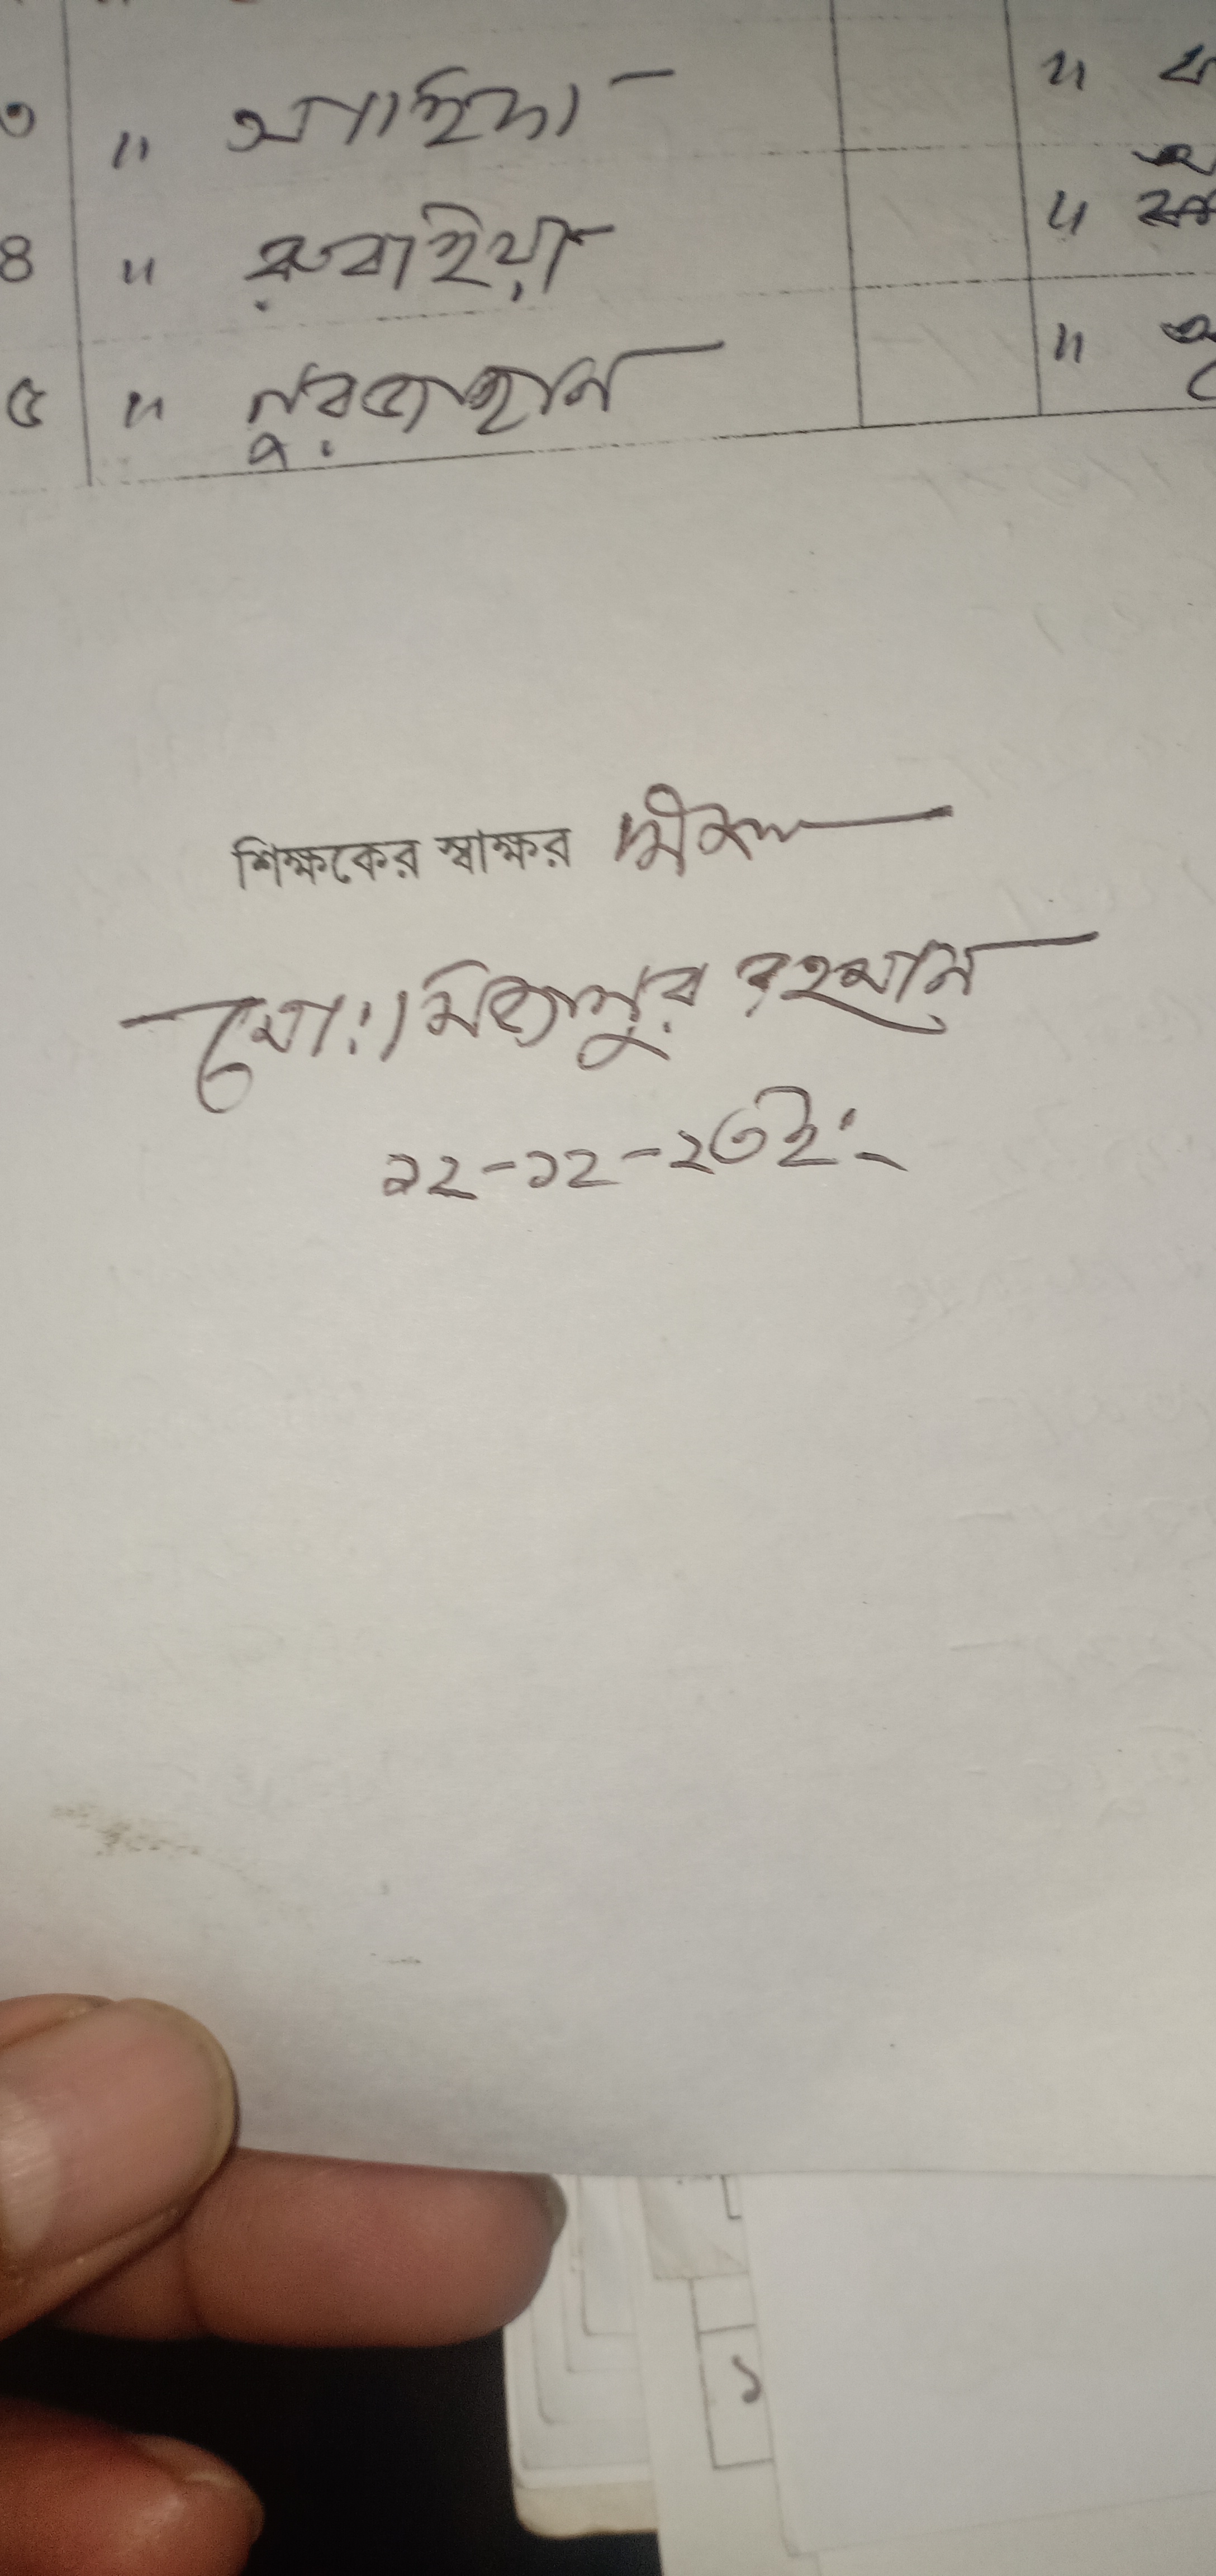 ৩ " মাহিদা "
৪ " রুবাইয়া "
৫ " নুরজাহান "
শিক্ষকের স্বাক্ষর
মো: মিজানুর রহমান
১২-১২-২৩ ইং
১